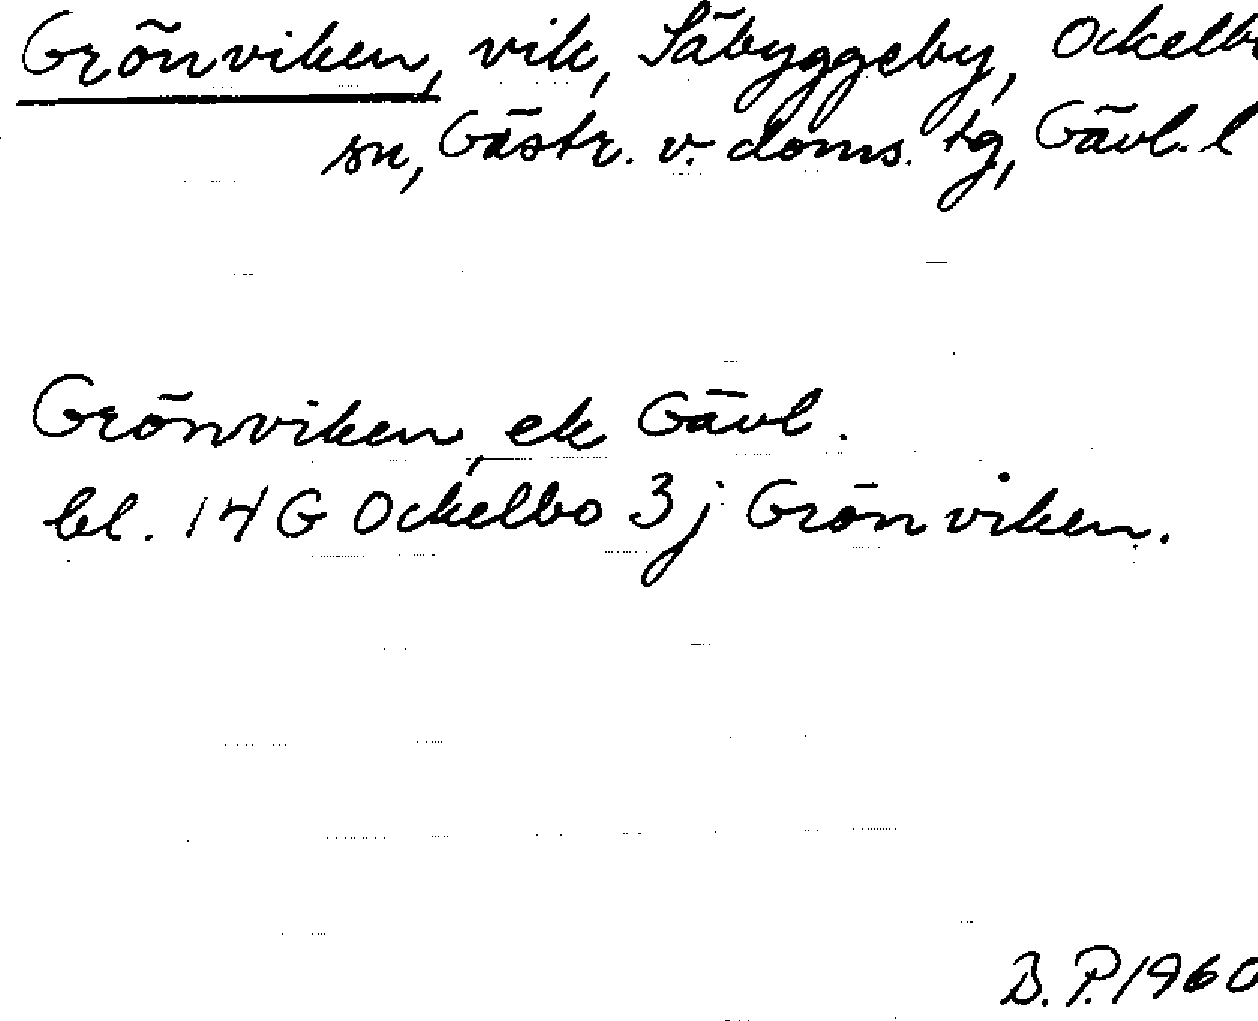 Grönviken, vik, Säbyggeby, Ockelbo
sn, Gästr. v. doms. tg, Gävl. l
Grönviken, ek Gävl.
bl. 14 G Ockelbo 3 j Grönviken.
B. P. 1960